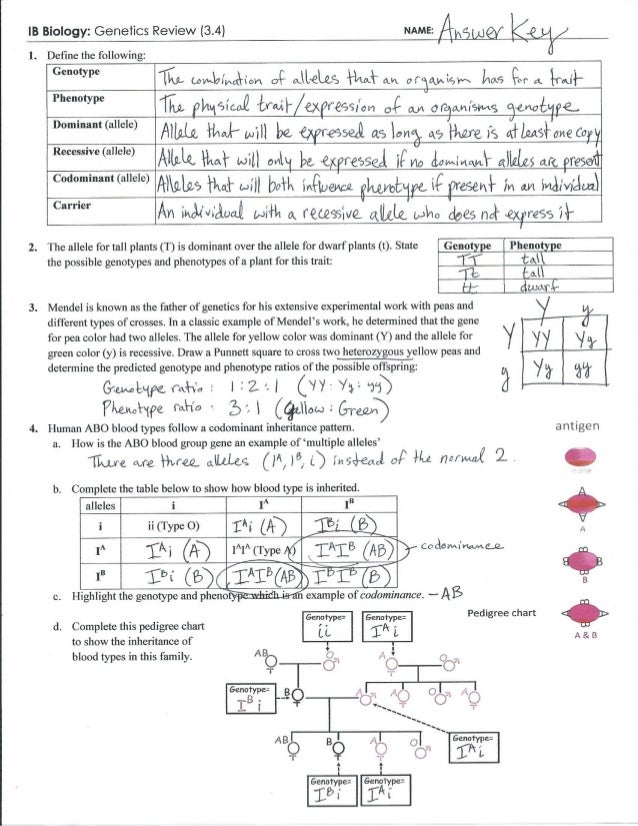 IB Biology: Genetics Review (3.4) NAME: Answer Key
1. Define the following:
Genotype The combination of alleles that an organism has for a trait
Phenotype The physical trait/expression of an organisms genotype
Dominant (allele) Allele that will be expressed as long as there is at least one copy
Recessive (allele) Allele that will only be expressed if no dominant alleles are present
Codominant (allele) Alleles that will both influence phenotype if present in an individual
Carrier An individual with a recessive allele who does not express it
2. The allele for tall plants (T) is dominant over the allele for dwarf plants (t). State
the possible genotypes and phenotypes of a plant for this trait:
Genotype Phenotype
TT tall
Tt tall
tt dwarf
3. Mendel is known as the father of genetics for his extensive experimental work with peas and
different types of crosses. In a classic example of Mendel's work, he determined that the gene
for pea color had two alleles. The allele for yellow color was dominant (Y) and the allele for
green color (y) is recessive. Draw a Punnett square to cross two heterozygous yellow peas and
determine the predicted genotype and phenotype ratios of the possible offspring:
Y y
Y YY Yy
y Yy yy
Genotype ratio : 1:2:1 (YY: Yy: yy)
Phenotype ratio : 3:1 (Yellow: Green)
4. Human ABO blood types follow a codominant inheritance pattern.
a. How is the ABO blood group gene an example of 'multiple alleles'
There are three alleles (Iᴬ, Iᴮ, i) instead of the normal 2.
b. Complete the table below to show how blood type is inherited.
alleles i Iᴬ Iᴮ
i ii (Type O) Iᴬi (A) Iᴮi (B)
Iᴬ Iᴬi (A) IᴬIᴬ (Type A) IᴬIᴮ (AB) codominance
Iᴮ Iᴮi (B) IᴬIᴮ (AB) IᴮIᴮ (B)
c. Highlight the genotype and phenotype which is an example of codominance. – AB
d. Complete this pedigree chart
to show the inheritance of
blood types in this family.
antigen
none
A
B B
B
A & B
Pedigree chart
Genotype= ii
Genotype= Iᴬi
AB O A O
Genotype= Iᴮi
B A A O A
AB B A O
Genotype= Iᴬi
Genotype= Iᴮi
Genotype= Iᴬi